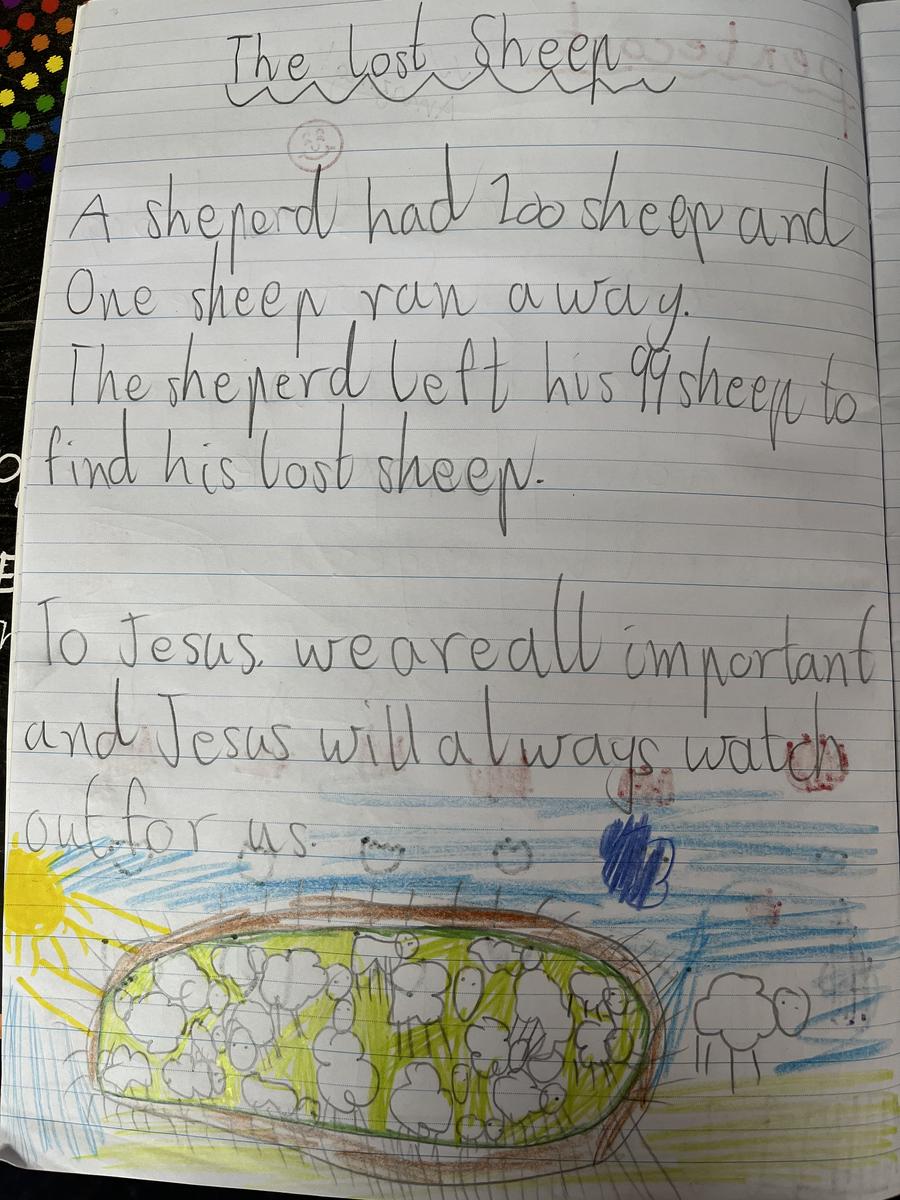 The Lost Sheep
A sheperd had 200 sheep and
One sheep ran away.
The sheperd left his 99 sheep to
find his lost sheep.
To Jesus, we are all important
and Jesus will always watch
out for us.